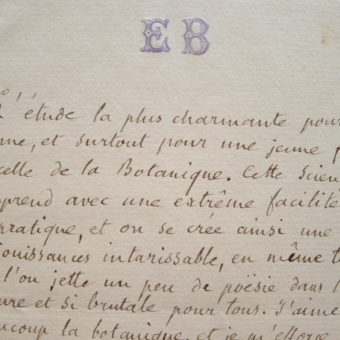 E B
L'étude la plus charmante pour
me, et surtout pour une jeune
celle de la Botanique. Cette Scien
prend avec une extrême facilité
pratique, et on se crée ainsi une
ouissances intarissable, en même t
l'on jette un peu de poësie dans l
ure et si brutale pour tous. J'aime
aucoup la botanique, et je m'efforce